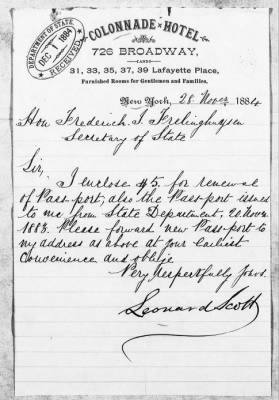 DEPARTMENT OF STATE,
DEC 1 1884
RECEIVED.
COLONNADE HOTEL
726 BROADWAY,
AND
31, 33, 35, 37, 39 Lafayette Place,
Furnished Rooms for Gentlemen and Families,
New York, 28 Nover 1884
Hon Frederick. T. Frelinghuysen
Secretary of State
Sir,
I enclose $5. for renewal
of Pass-port; also the Pass-port issued
to me from State Department, 20 Nover
1883. Please forward new Pass-port to
my address as above at your earliest
convenience and oblige
Very respectfully yours.
Leonard Scott